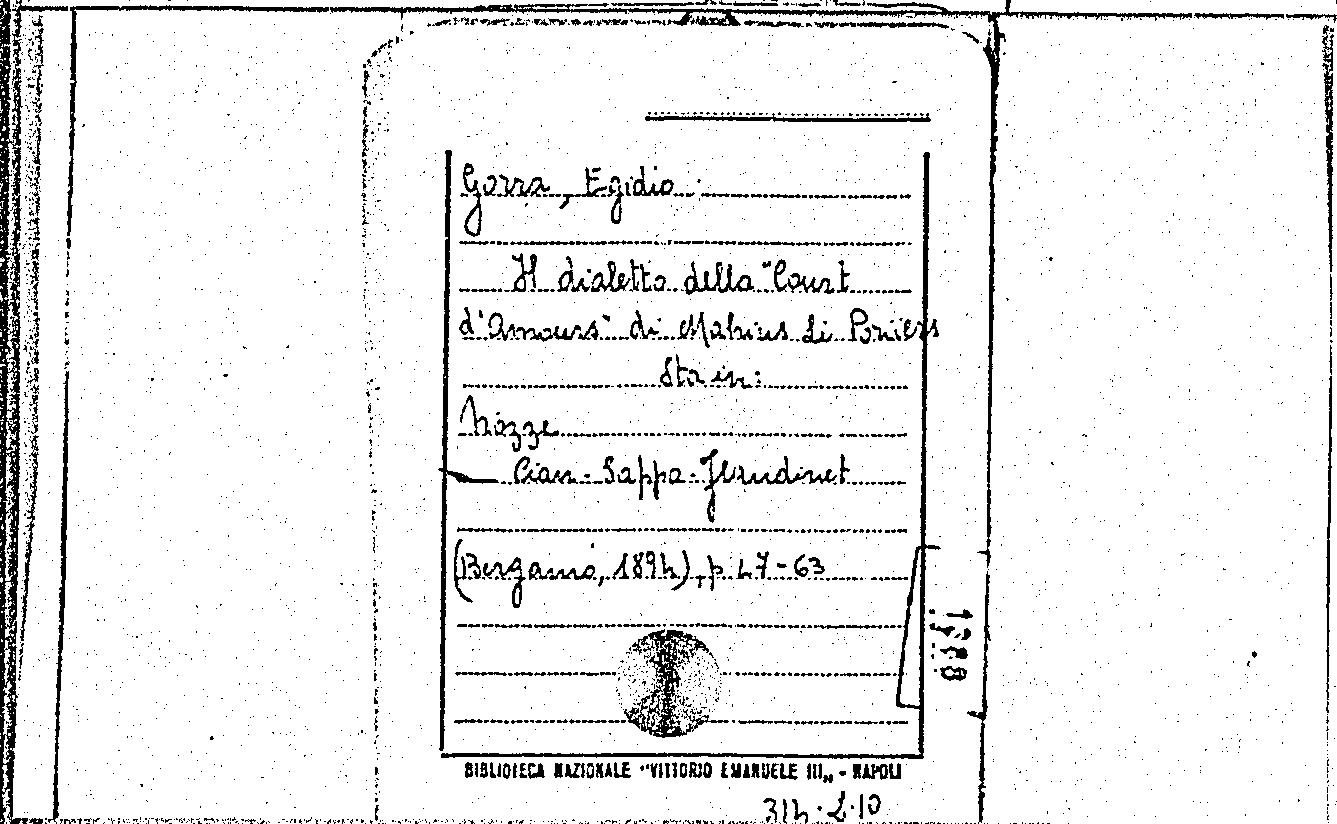 Gorra, Egidio.
Il dialetto della "Court
d'Amours" di Mahius Li Poriers
Sta in:
Nozze
Cian-Sappa-Flandinet
(Bergamo, 1894), p. 47-63
BIBLIOTECA NAZIONALE "VITTORIO EMANUELE III„ - NAPOLI
314.2.10